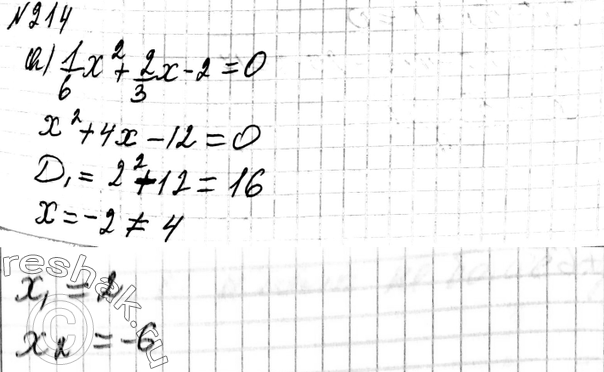 №214
а) 1/6 x² + 2/3 x - 2 = 0
x² + 4x - 12 = 0
D₁ = 2² + 12 = 16
x = -2 ± 4
x₁ = 2
x₂ = -6
reshak.ru
©